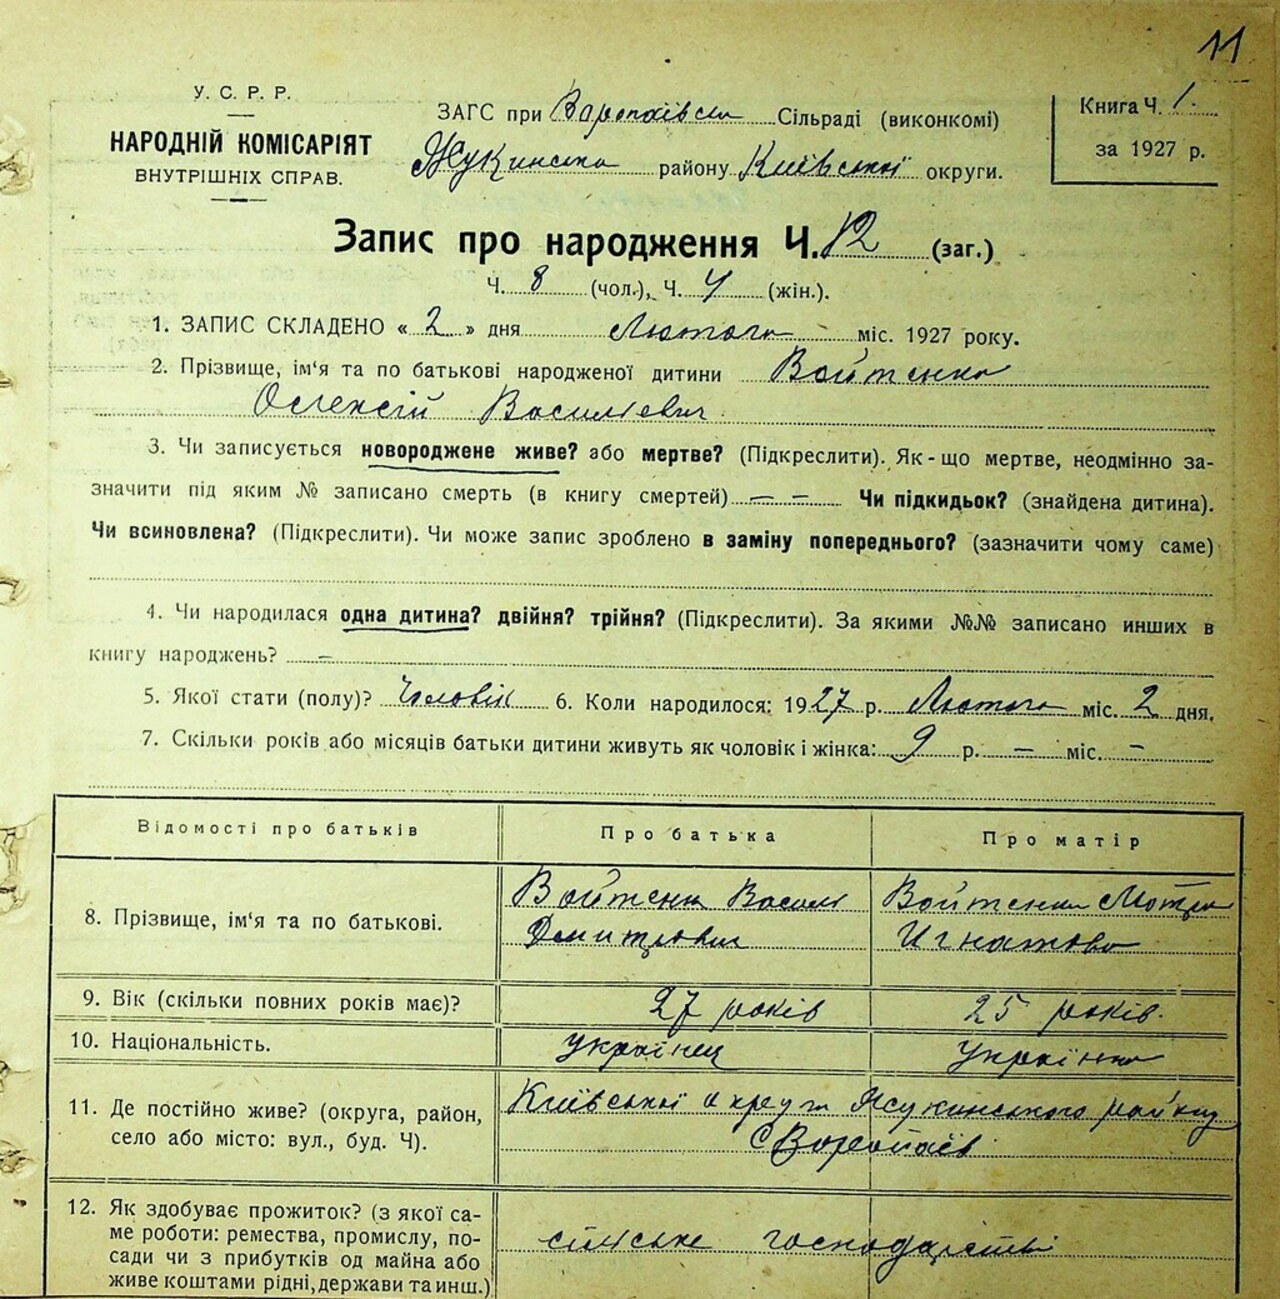 11
У. С. Р. Р.
НАРОДНІЙ КОМІСАРІЯТ
ВНУТРІШНІХ СПРАВ.
ЗАГС при Воропаївськ Сільраді (виконкомі)
Жукинсько району Київської округи.
Книга Ч. 1.
за 1927 р.
Запис про народження Ч. 12 (заг.)
Ч. 8 (чол.), Ч. 4 (жін.).
1. ЗАПИС СКЛАДЕНО « 2 » дня Лютого міс. 1927 року.
2. Прізвище, ім'я та по батькові народженої дитини Войтенко
Олексій Василієвич
3. Чи записується новороджене живе? або мертве? (Підкреслити). Як-що мертве, неодмінно за-
значити під яким № записано смерть (в книгу смертей) — — Чи підкидьок? (знайдена дитина).
Чи всиновлена? (Підкреслити). Чи може запис зроблено в заміну попереднього? (зазначити чому саме)
4. Чи народилася одна дитина? двійня? трійня? (Підкреслити). За якими №№ записано инших в
книгу народжень? —
5. Якої стати (полу)? Чоловік 6. Коли народилося: 1927 р. Лютого міс. 2 дня.
7. Скільки років або місяців батьки дитини живуть як чоловік і жінка: 9 р. — міс. —
Відомості про батьків Про батька Про матір
8. Прізвище, ім'я та по батькові. Войтенко Василь Войтенко Мотря
Дмитрович Игнатова
9. Вік (скільки повних років має)? 27 років 25 років.
10. Національність. українец Українка
11. Де постійно живе? (округа, район, Київської округи Жукинського району
село або місто: вул., буд. Ч). с Воропаїв
12. Як здобуває прожиток? (з якої са-
ме роботи: ремества, промислу, по- сільське господарстві
сади чи з прибутків од майна або
живе коштами рідні, держави та инш.)